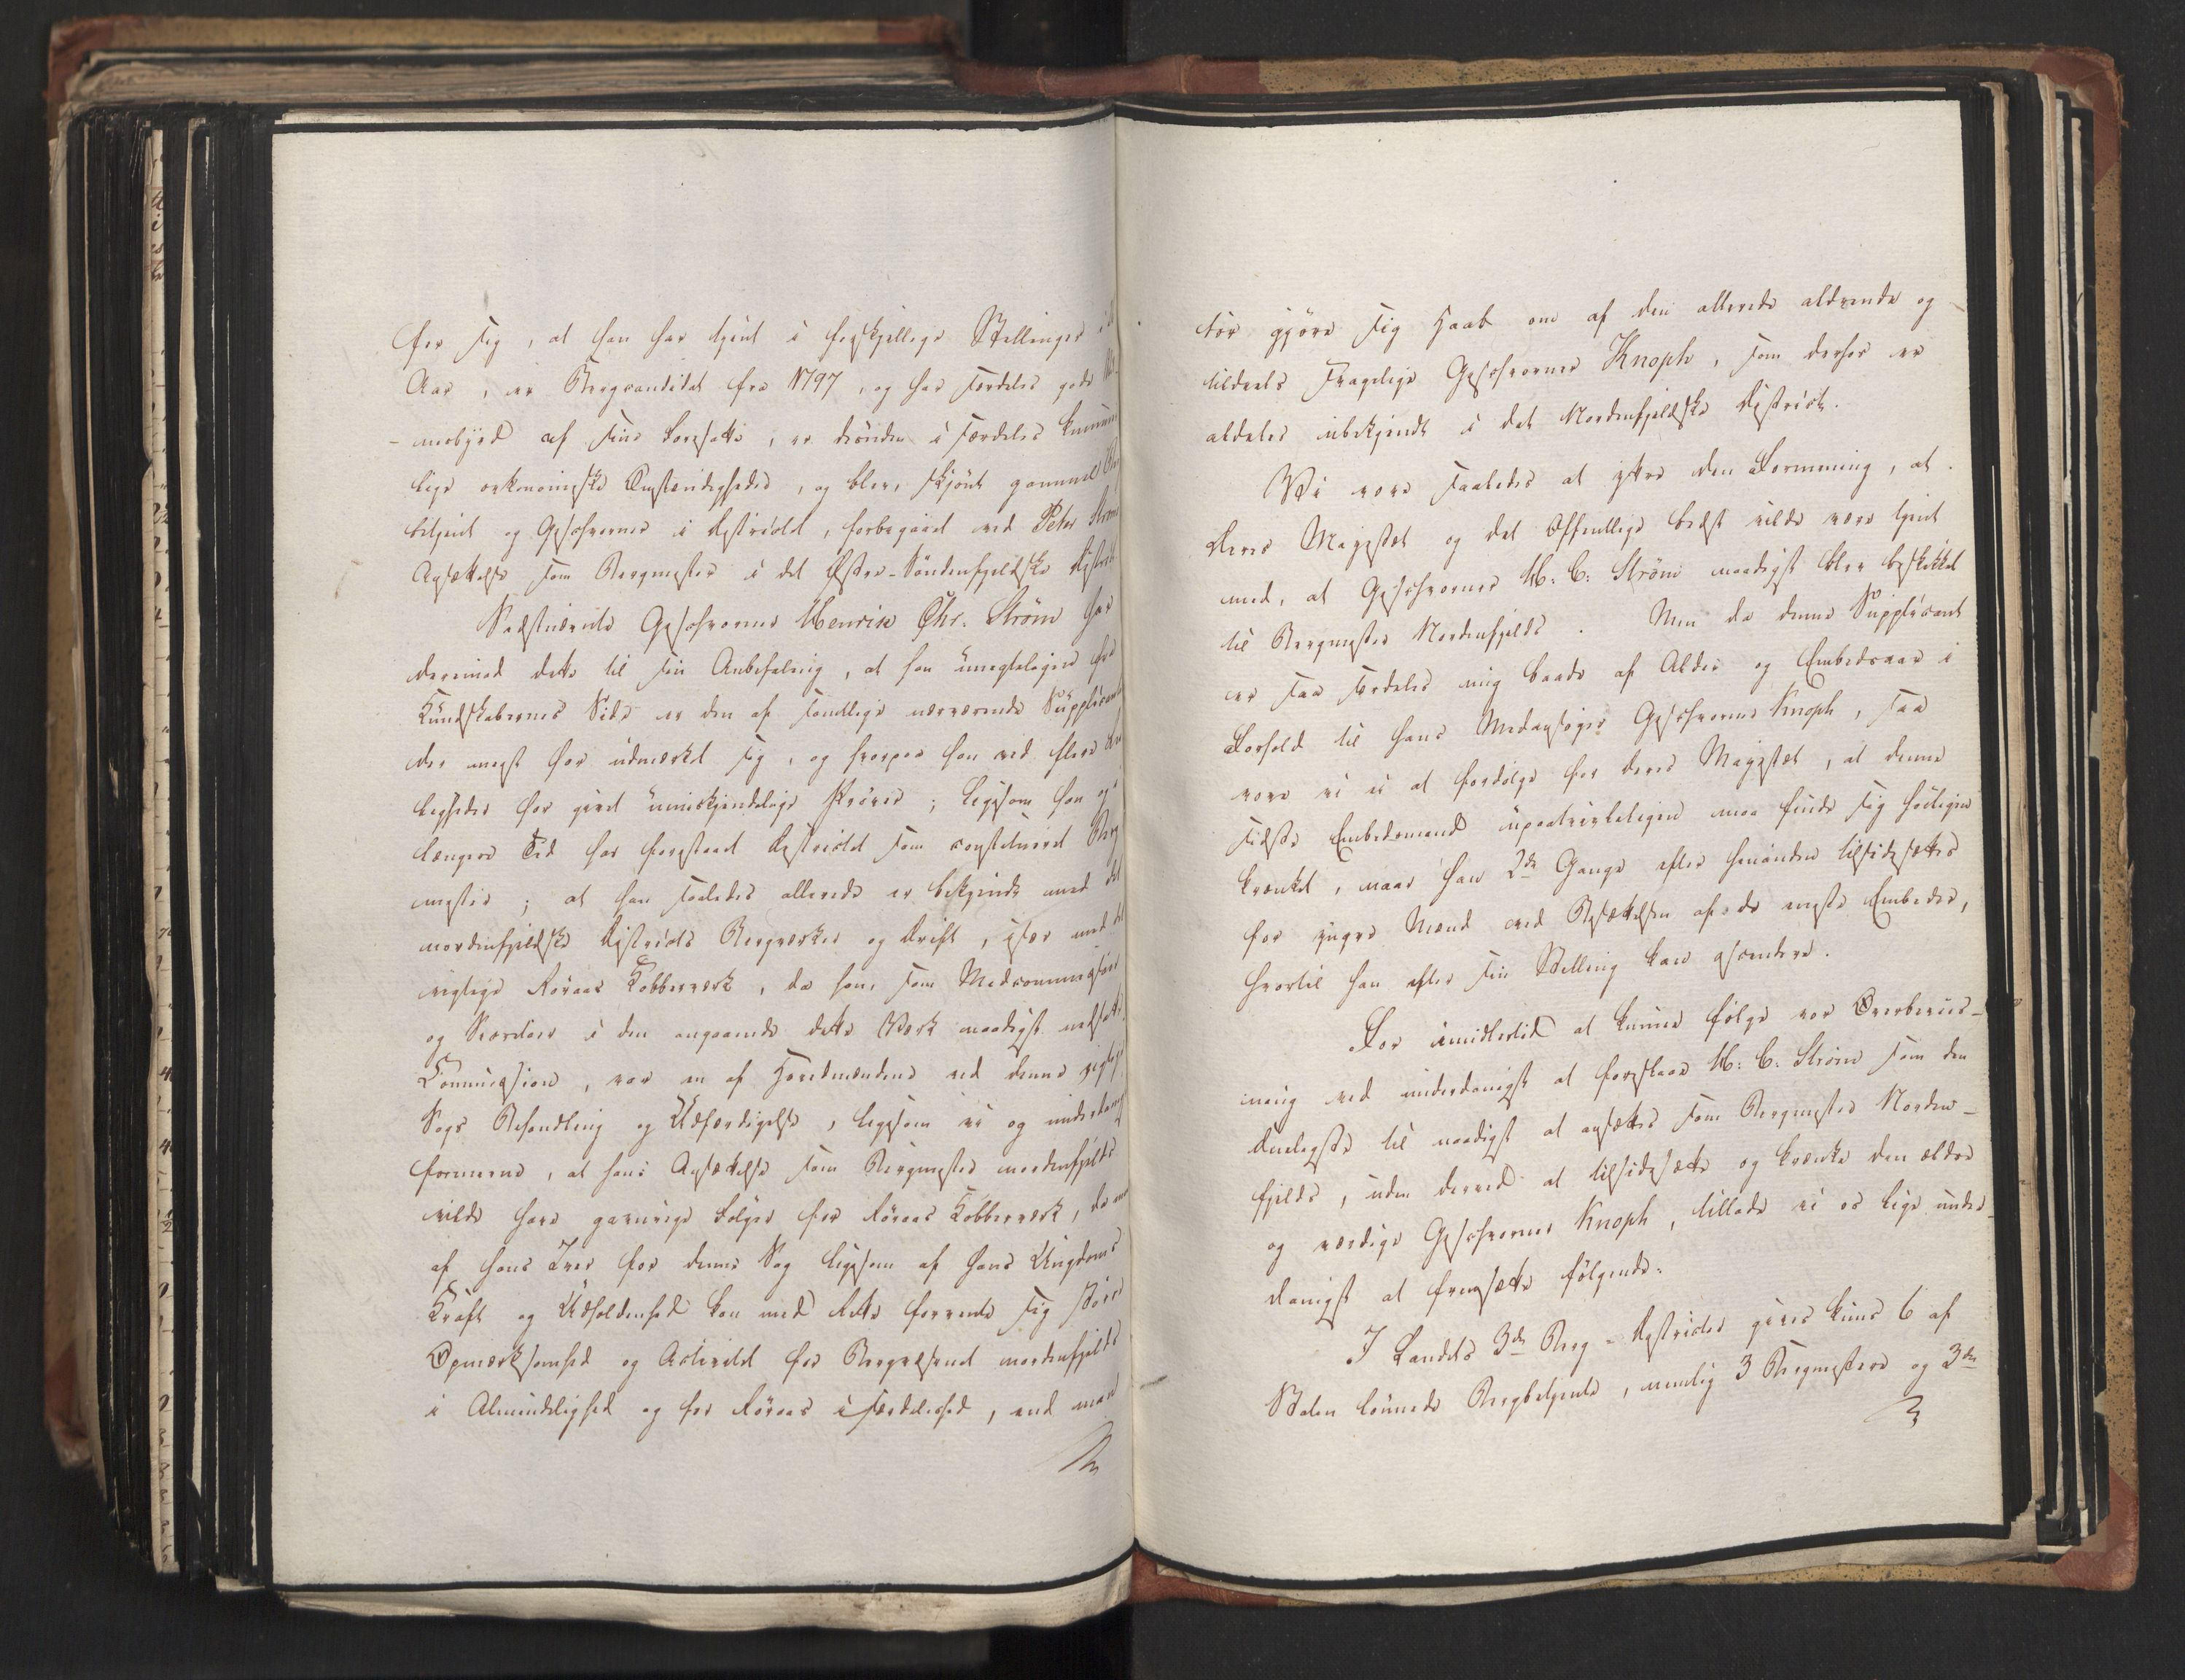 for sig, at han har tjent i forskjellige Stillinger i
Aar, er Bergcandidat fra 1797, og har særdeles gode
-nesbyrd af sine Foresatte, er desuden i særdeles kummer
lige oekonomiske Omstændigheder, og blev, skjönt gammel
betjent og Geschworner i Districtet, forbigaaet ved Peter Ström
Ansættelse som Bergmester i det Östre-Söndenfjeldske District
Sidstnævnte Geschworner Henrich Chr. Ström har
derimod dette til sin Anbefaling, at han unegtelegen fra
Kundskabernes Side er den af samtlige nærværende Supplicanter
der meest har udmærket sig, og hvorpaa han ved flere
ligheder har givet umiskjendelige Pröver; ligesom han og i
længere Tid har forestaaet Districtet som constitueret Berg
mester; at han saaledes allerede er bekjendt med det
nordenfjeldske Districts Bergværker og Drift, især med det
vigtige Röraas Kobberværk, da han, som Medcommissair
og Secretair i den angaaende dette Værk naadigst nedsatte
Commission, var en af Hovedmændene ved denne vigtige
Sags Behandling og Udfærdigelse, ligesom vi og underdanigst
formene, at hans Ansættelse som Bergmester nordenfjelds
vilde have gavnrige Fölger for Röraas Kobberværk, da man
af hans Iver for denne Sag ligesom af hans Ungdoms
Kraft og Udholdenhed kan med Rette forvente sig större
Opmærksomhed og Activitet for Bergvæsenet nordenfjelds
i Almindelighed og for Röraas i Særdeleshed, end man
tör gjöre sig Haab om af den allerede aldrende og
tildeels svagelige Geschworner Knoph, som derhos er
aldeles ubekjendt i det Nordenfjeldske District.
Vi vove saaledes at yttre den Formening, at
Deres Majestæt og det Offentlige bedst vilde være tjent
med, at Geschworner H: C: Ström naadigst blev beskikket
til Bergmester Nordenfjelds. Men da denne Supplicant
er saa særdeles ung baade af Alder og Embedsaar i
Forhold til hans Medansöger Geschworner Knoph, saa
vove vi ei at fordölge for Deres Majestæt, at denne
sidste Embedsmand upaatvivleligen maa finde sig höiligen
krænket, naar han 2de Gange efter hinanden tilsidesættes
for yngre Mænd ved Besættelsen af de eneste Embeder,
hvortil han efter sin Stilling kan ascendere.
For imidlertid at kunne fölge vor Overbeviis-
ning ved underdanigst at foreslaae H: C: Ström som den
dueligste til naadigst at ansættes som Bergmester Norden-
fjelds, uden derved at tilsidesætte og krænke den ældre
og værdige Geschworner Knoph, tillade vi os lige under-
danigst at fremsætte fölgende:
I Landets 3de Berg-Districter gives kuns 6 af
Staten lönnede Bergbetjente, nemlig 3 Bergmestere og 3de